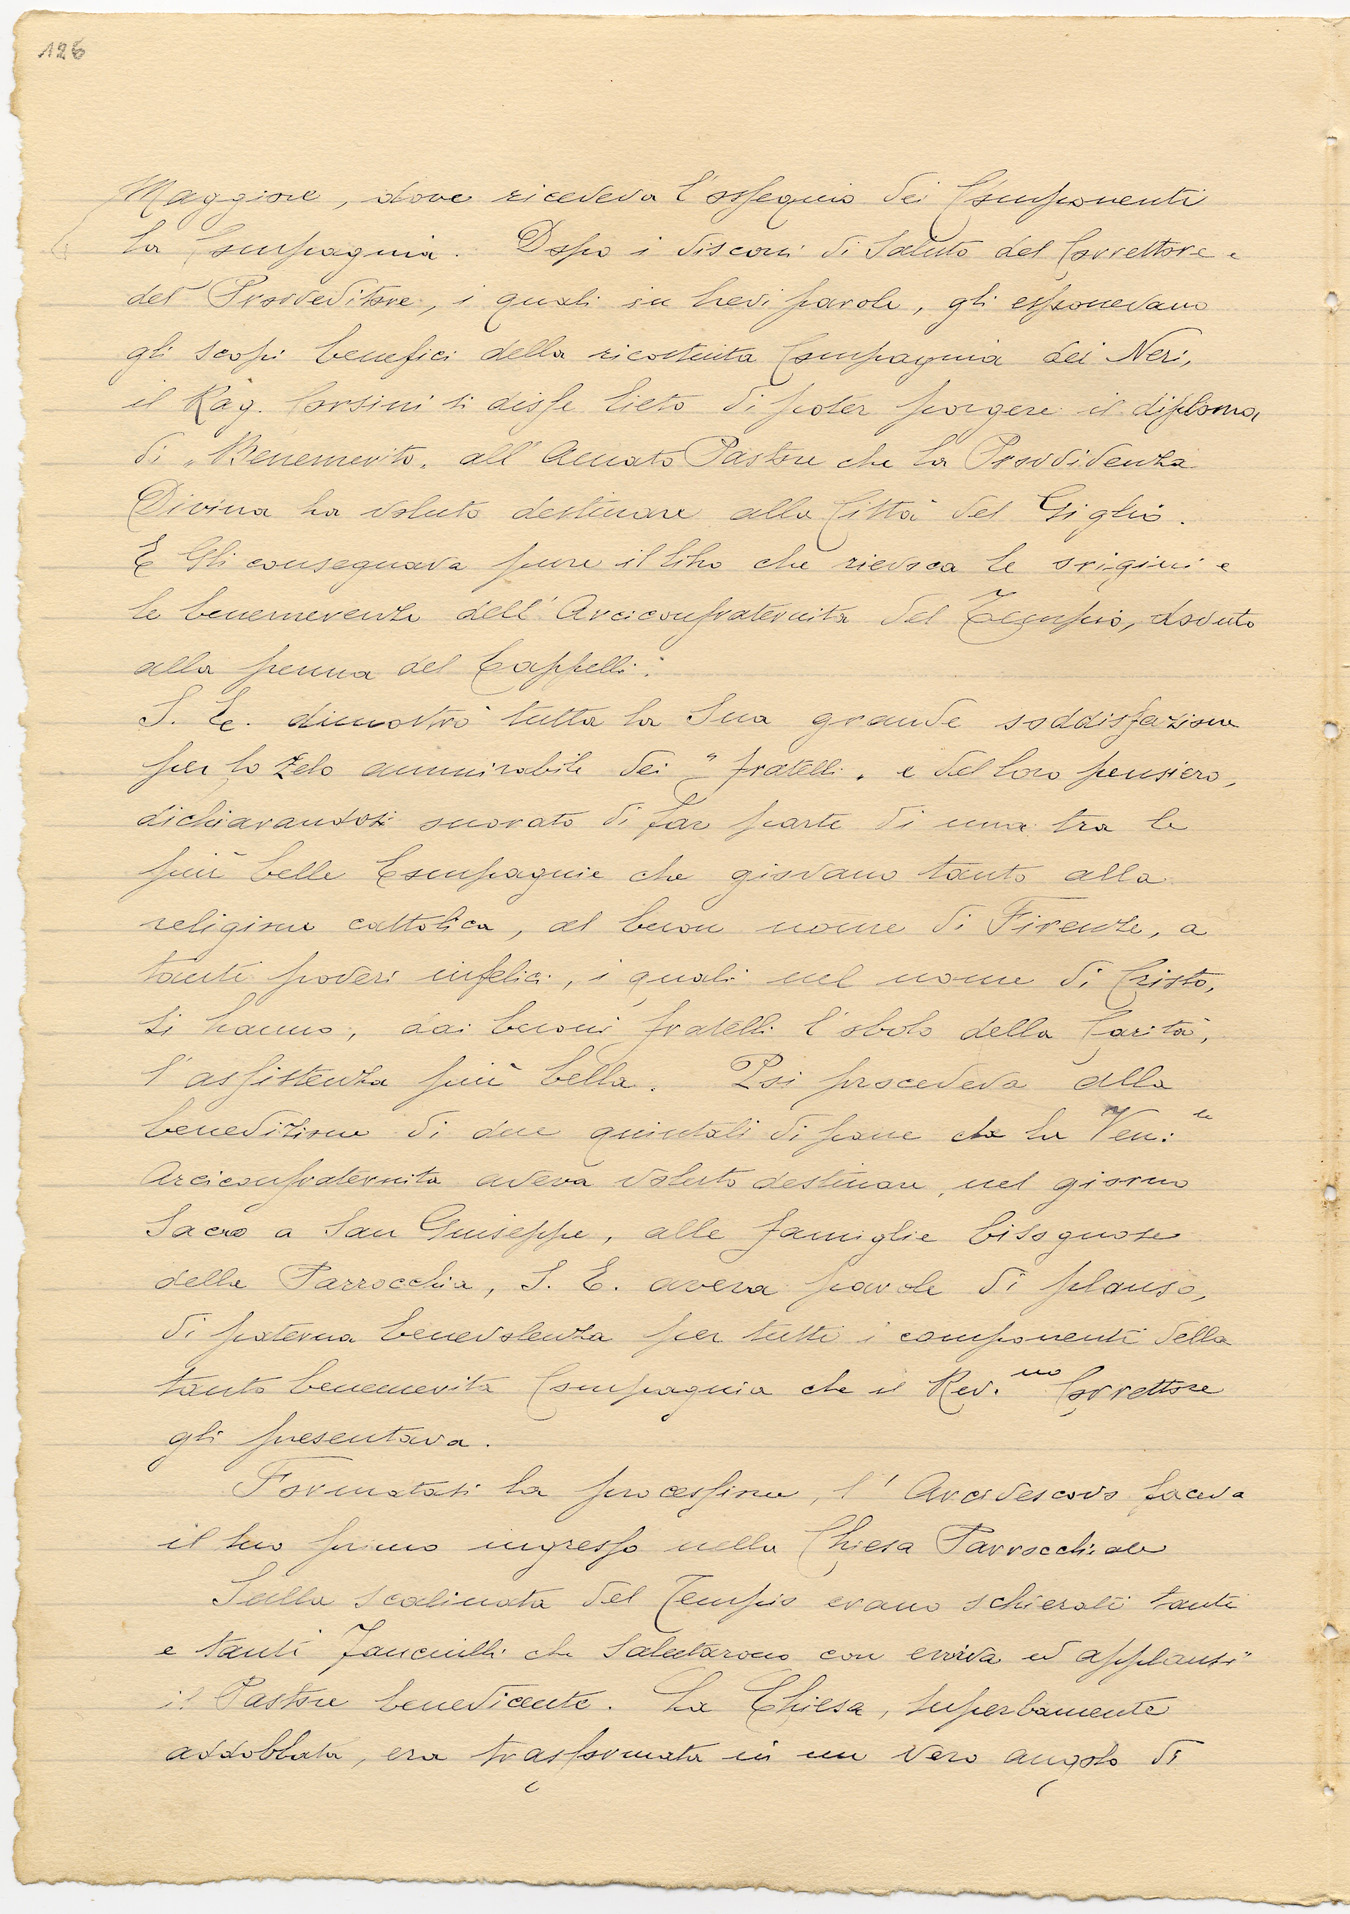 126
Maggiore, dove riceveva l'ossequio dei Componenti
la Compagnia. Dopo i discorsi di saluto del Correttore e
del Provveditore, i quali in brevi parole, gli esponevano
gli scopi benefici della ricostituita Compagnia dei Neri,
il Rag. Corsini si disse lieto di poter porgere il diploma
di "Benemerito" all'Amato Pastore che la Provvidenza
Divina ha voluto destinare alla Città del Giglio.
E Gli consegnava pure il libro che rievoca le origini e
le benemerenze dell'Arciconfraternita del Tempio, dovuto
alla penna del Cappelli.
S. E. dimostrò tutta la Sua grande soddisfazione
per lo zelo ammirabile dei "fratelli" e del loro pensiero,
dichiarandosi onorato di far parte di una tra le
più belle Compagnie che giovano tanto alla
religione cattolica, al buon nome di Firenze, a
tanti poveri infelici, i quali nel nome di Cristo,
si hanno, dai buoni fratelli l'obolo della Carità,
l'assistenza più bella. Poi procedeva alla
benedizione di due quintali di pane che la Ven.le
Arciconfraternita aveva voluto destinare, nel giorno
Sacro a San Giuseppe, alle famiglie bisognose
della Parrocchia, S. E. aveva parole di plauso,
di paterna benevolenza per tutti i componenti della
tanto benemerita Compagnia che il Rev.mo Correttore
gli presentava.
Formatasi la processione, l'Arcivescovo faceva
il suo primo ingresso nella Chiesa Parrocchiale
Sulla scalinata del Tempio erano schierati tanti
e tanti fanciulli che salutarono con evviva ed applausi
il Pastore benedicente. La Chiesa, superbamente
addobbata, era trasformata in un vero angolo di